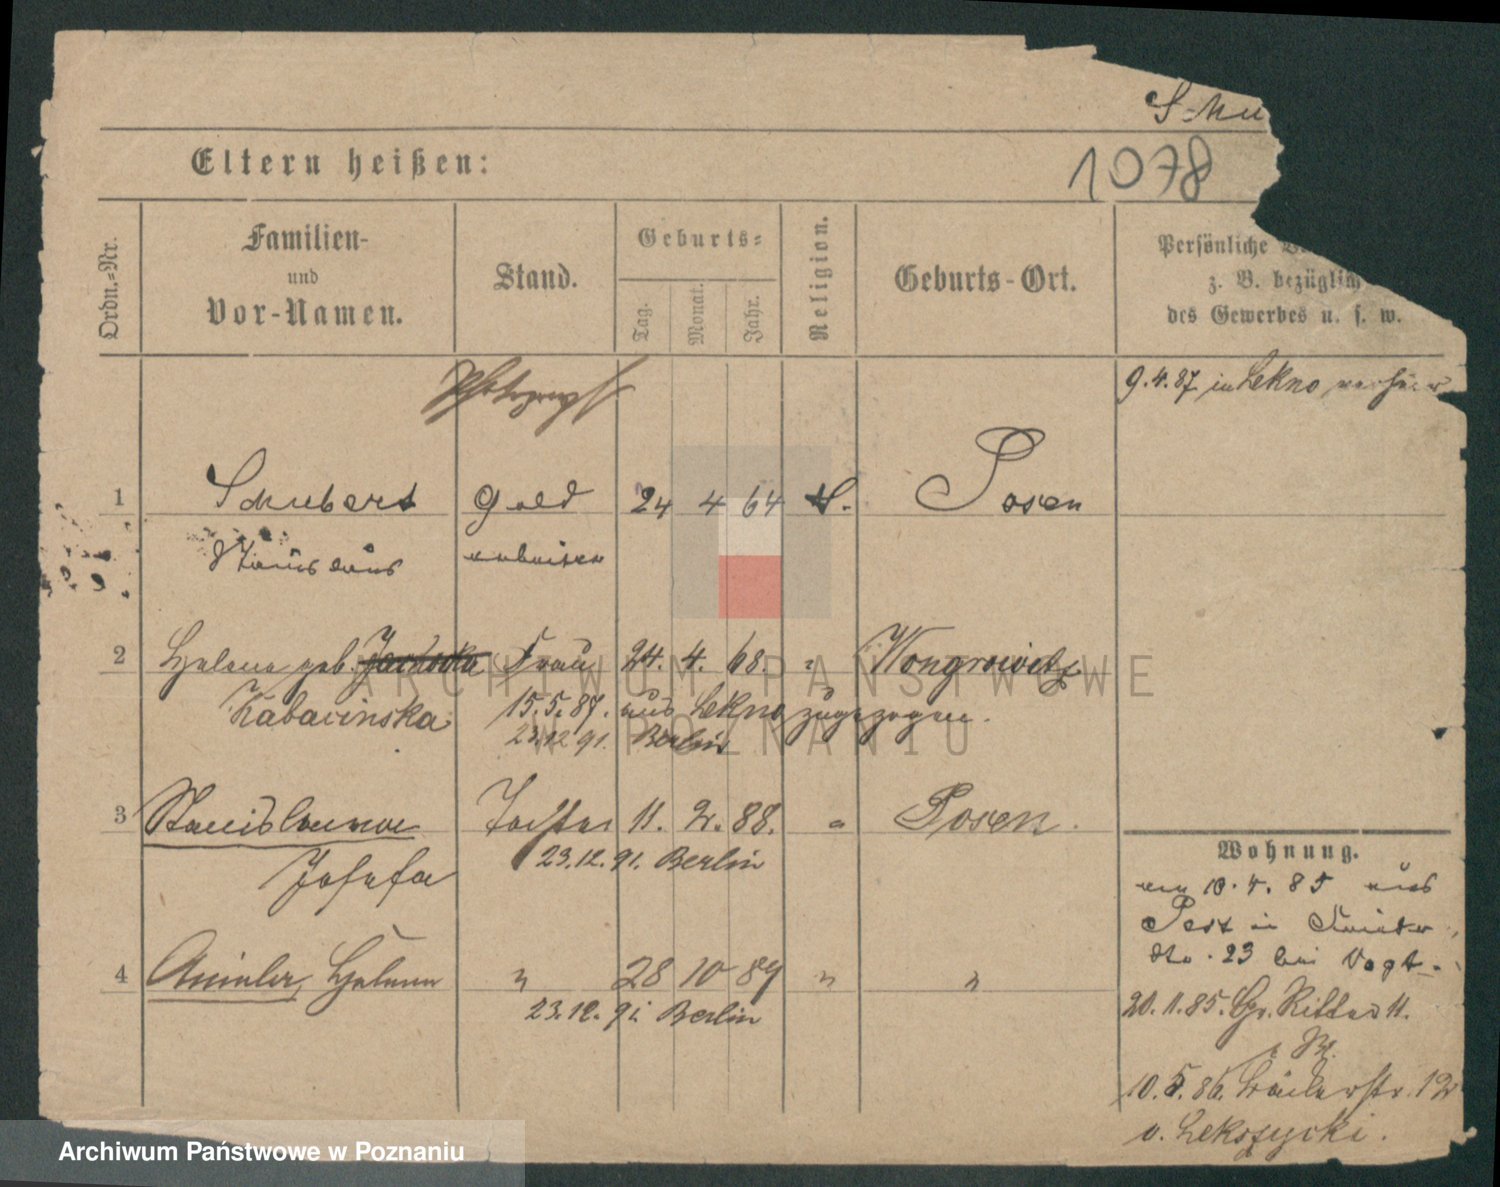 Schu
Eltern heißen:
1078
Ordn.-Nr.
Familien-
und
Vor-Namen.
Stand.
Geburts-
Tag.
Monat.
Jahr.
Religion.
Geburts-Ort.
Persönliche
z. B. bezüglich
des Gewerbes u. s. w.
9.4.87 in Lekno
Photograph
1 Schubert Gold 24 4 64 Posen
Stanislaus arbeiter
2 Helene geb. Frau 24. 4. 68. " Wongrowitz
Kabacinska 15.5.87. aus Lekno zugezogen.
23.12.91. Berlin
3 Stanislawa Tochter 11. 2. 88. " Posen.
Josefa 23.12.91. Berlin
4 Helene " 28 10 89 " "
23.12.91. Berlin
Wohnung.
am 10.4.85 aus
Pest in
No. 23 bei Vogt.
20.11.85. Gr. Ritter 11.
10.5.86. 12
v. Lekszycki.
ARCHIWUM PAŃSTWOWE
W POZNANIU
Archiwum Państwowe w Poznaniu